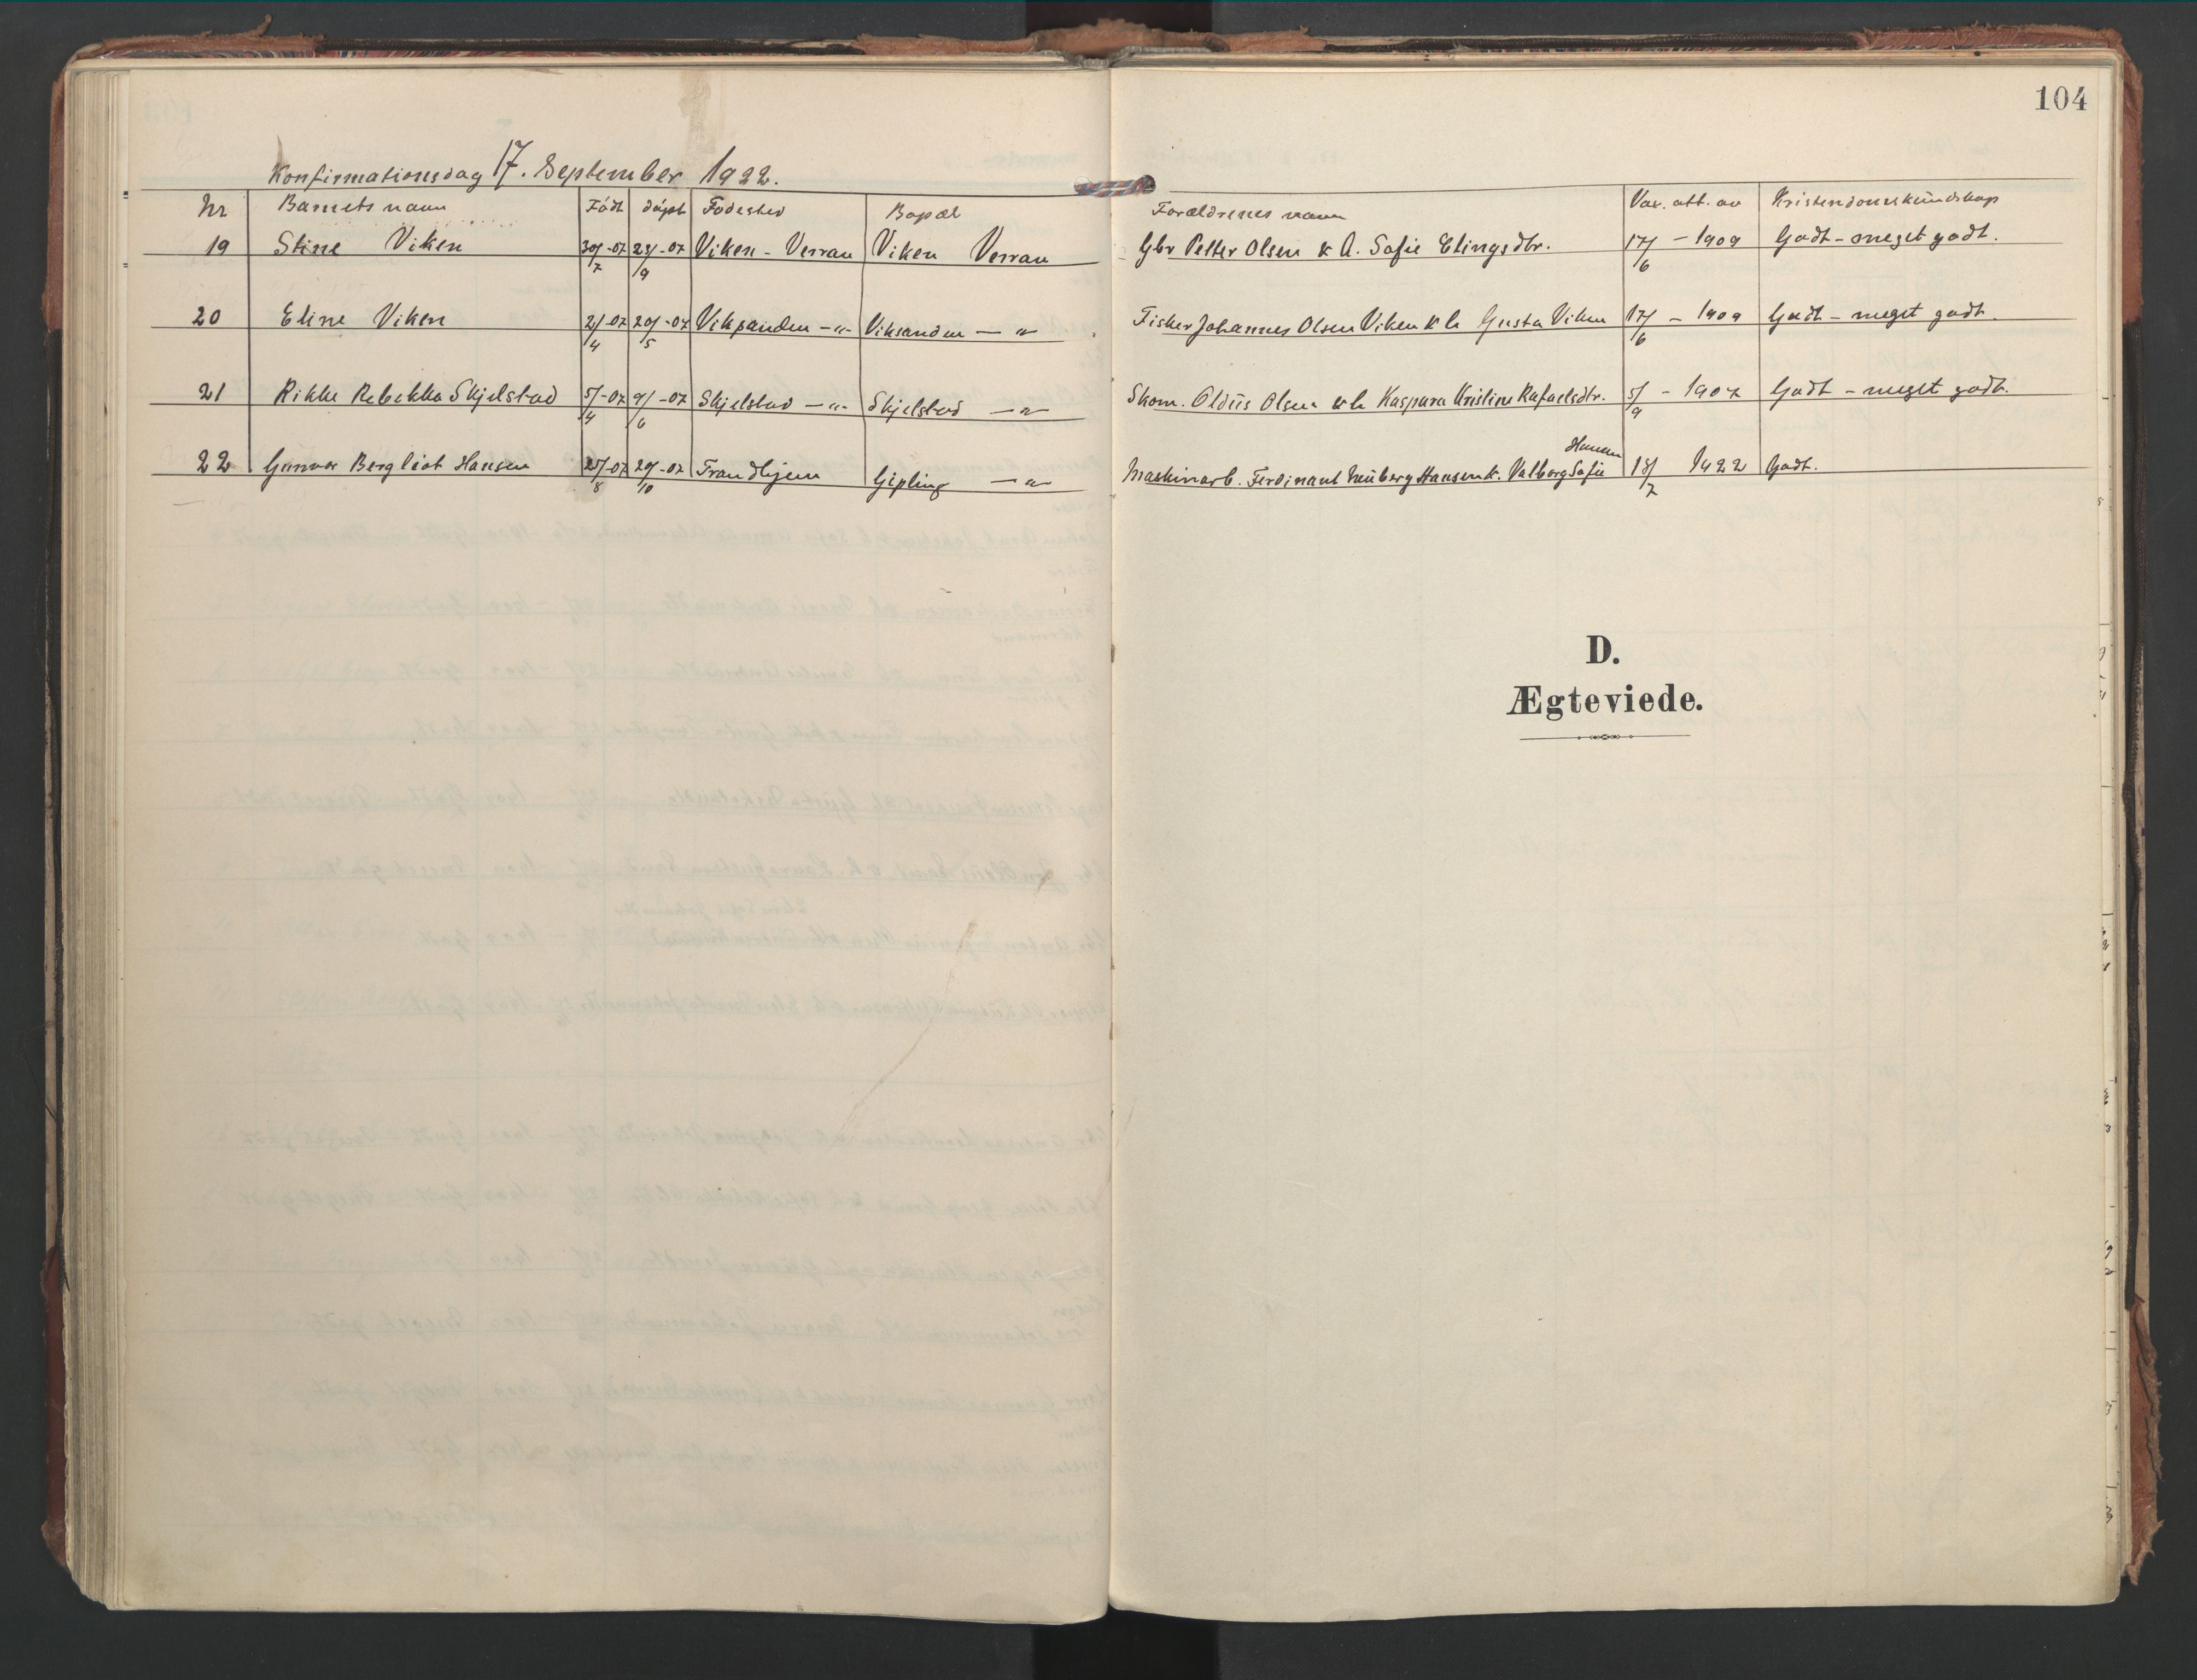 104
Konfirmationsdag 17. September 1922.
Nr Barnets navn Født døpt Fødested Bopæl Forældrenes navn Vax. att. av Kristendomskundskap
19 Stine Viken 30/7-07 29/9-07 Viken - Verran Viken Verran Gbr Petter Olsen & A. Sofie Elingsdtr. 17/6 - 1909 Godt - meget godt.
20 Eline Viken 2/4-07 20/5-07 Viksanden -"- Viksanden - " Fisker Johannes Olsen Viken & h Gusta Viken 17/6 - 1909 Godt - meget godt.
21 Rikke Rebekka Skjelstad 5/4-07 9/6-07 Skjelstad -"- Skjelstad -"- Skom. Oldiis Olsen & h Kaspara Kristine Rafaelsdtr. 5/9 - 1907 Godt - meget godt.
Hansen
22 Gunvor Bergliot Hansen 25/8-07 20/10-07 Trondhjem Gipling -"- Maskinarb. Ferdinant Hansen & Valborg Sofie 18/7 1922 Godt.
D.
Ægteviede.